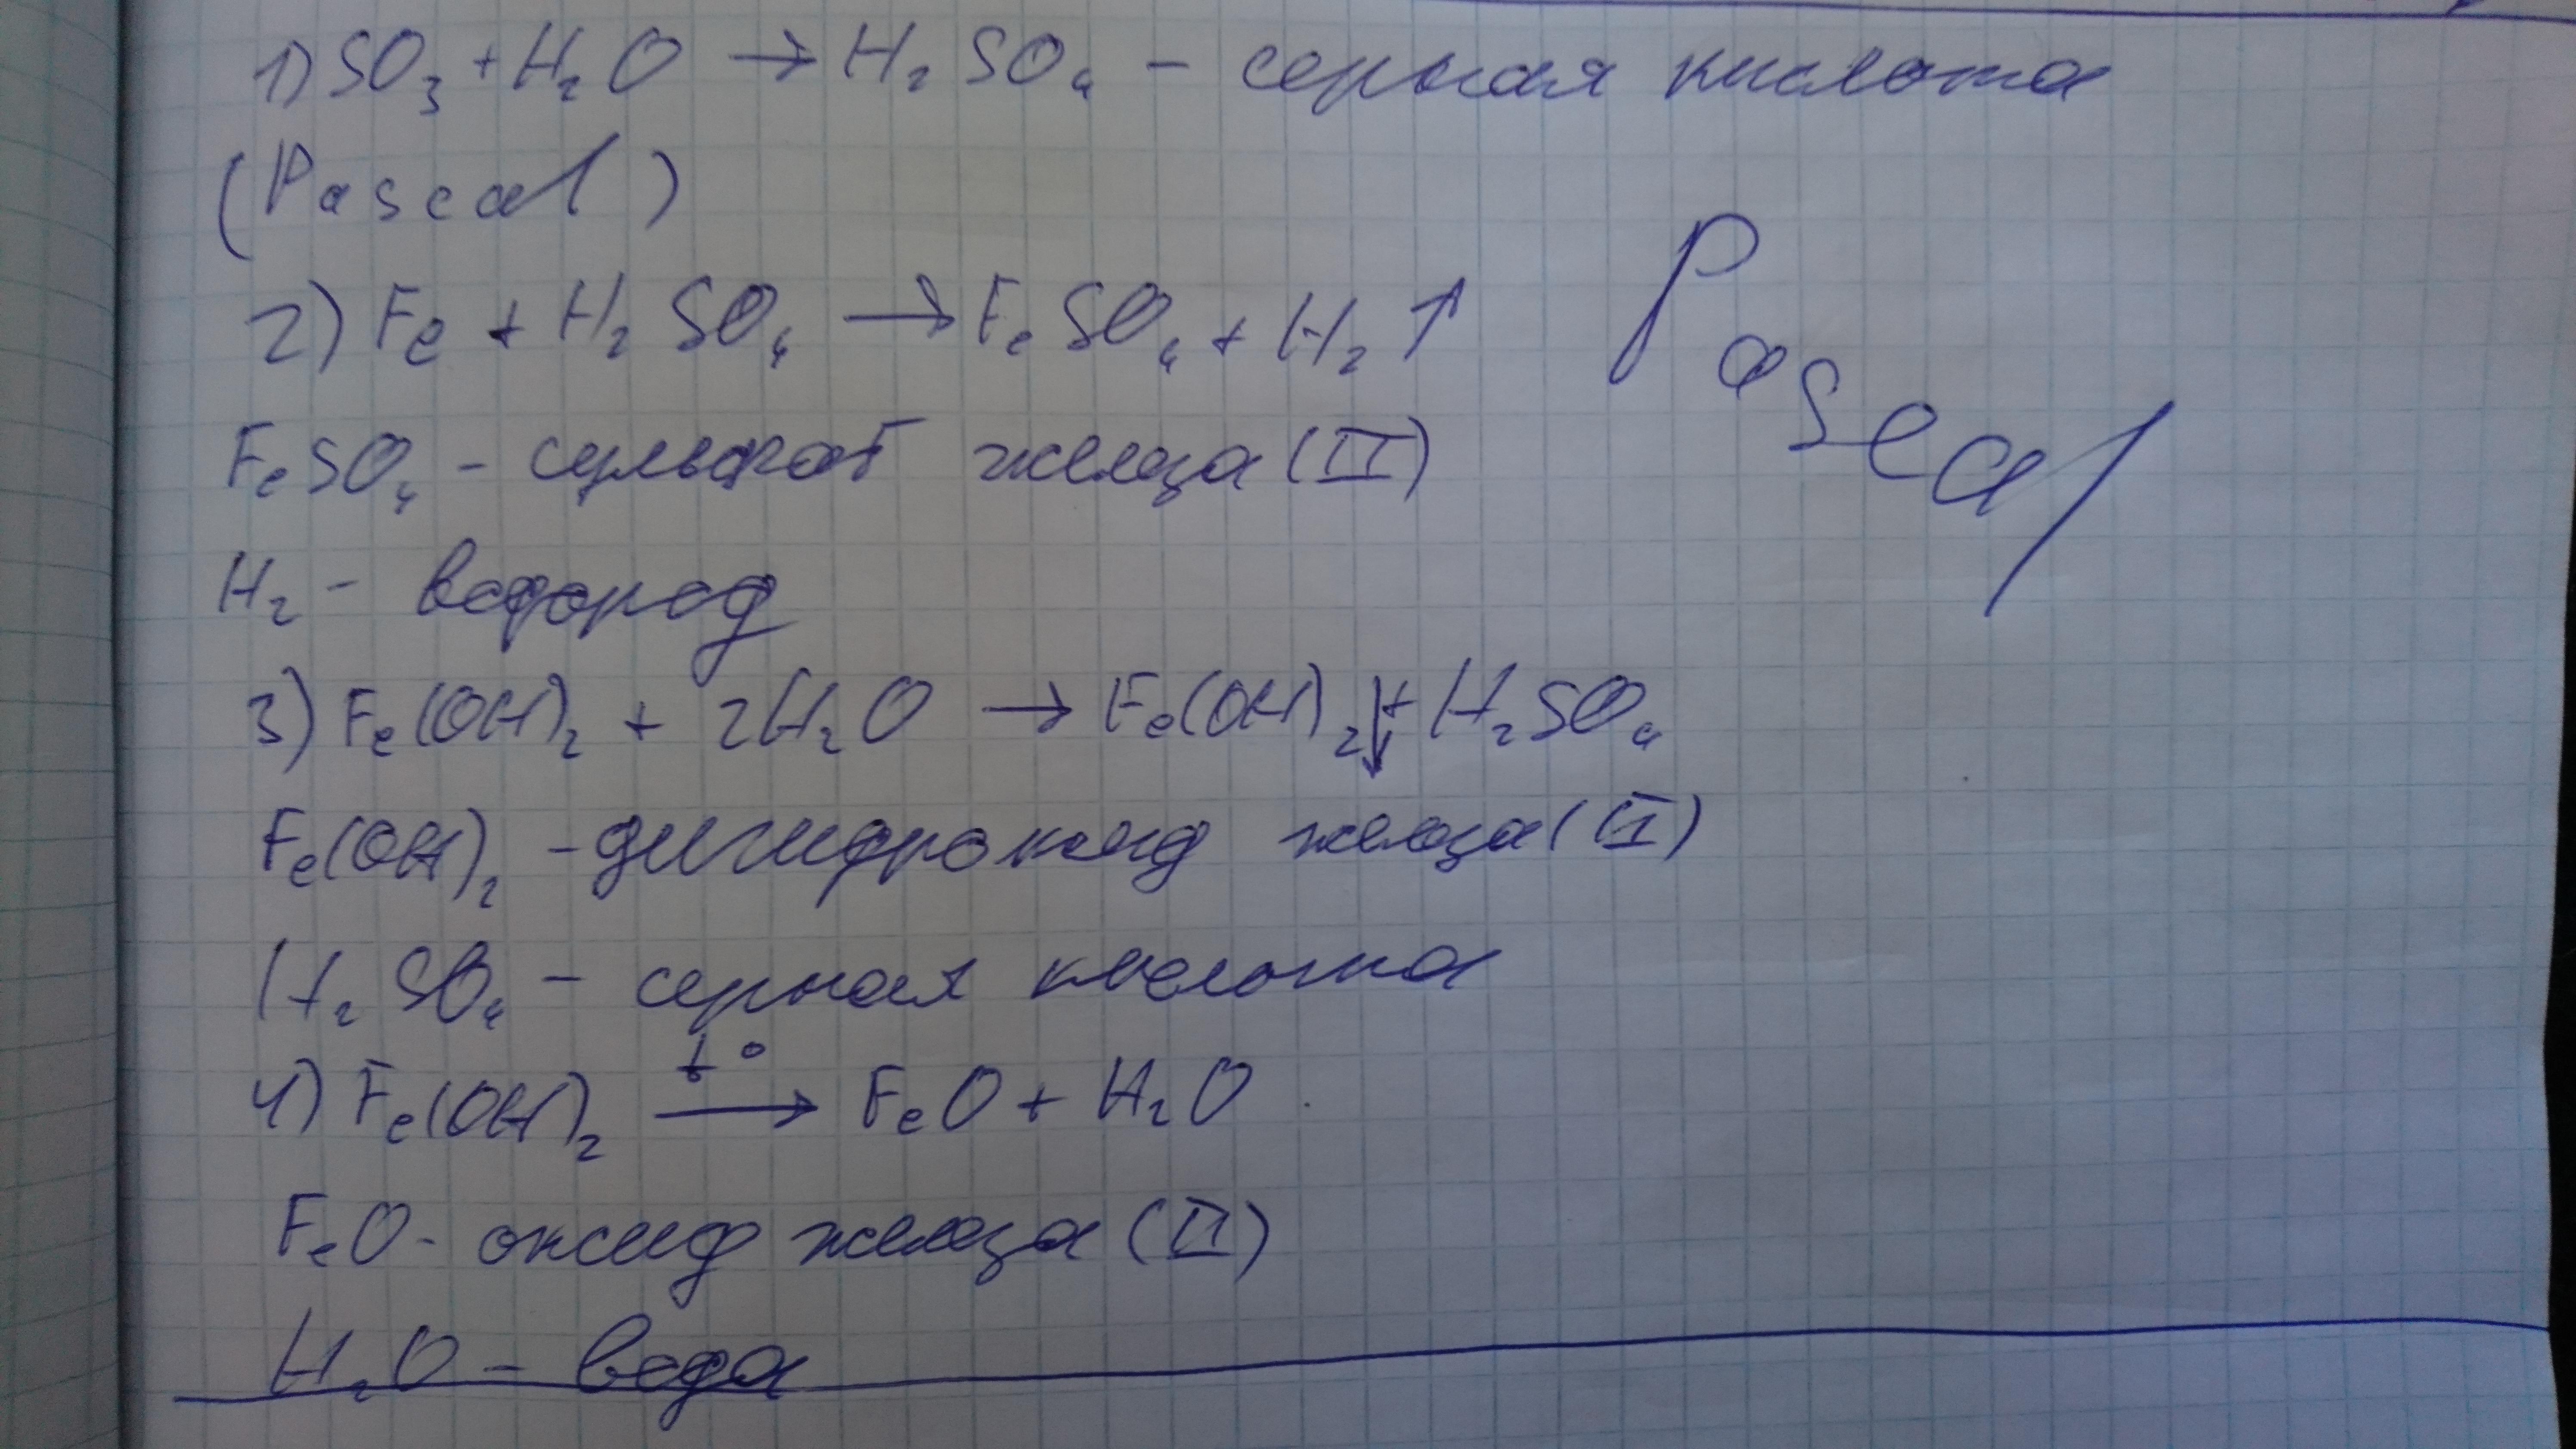 1) SO₃ + H₂O → H₂SO₄ - серная кислота
(Pascal)
2) Fe + H₂SO₄ → FeSO₄ + H₂↑
Pascal
FeSO₄ - сульфат железа (II)
H₂ - водород
3) Fe(OH)₂ + 2H₂O → Fe(OH)₂↓ + H₂SO₄
Fe(OH)₂ - дигидроксид железа (II)
H₂SO₄ - серная кислота
4) Fe(OH)₂ t°→ FeO + H₂O
FeO - оксид железа (II)
H₂O - вода